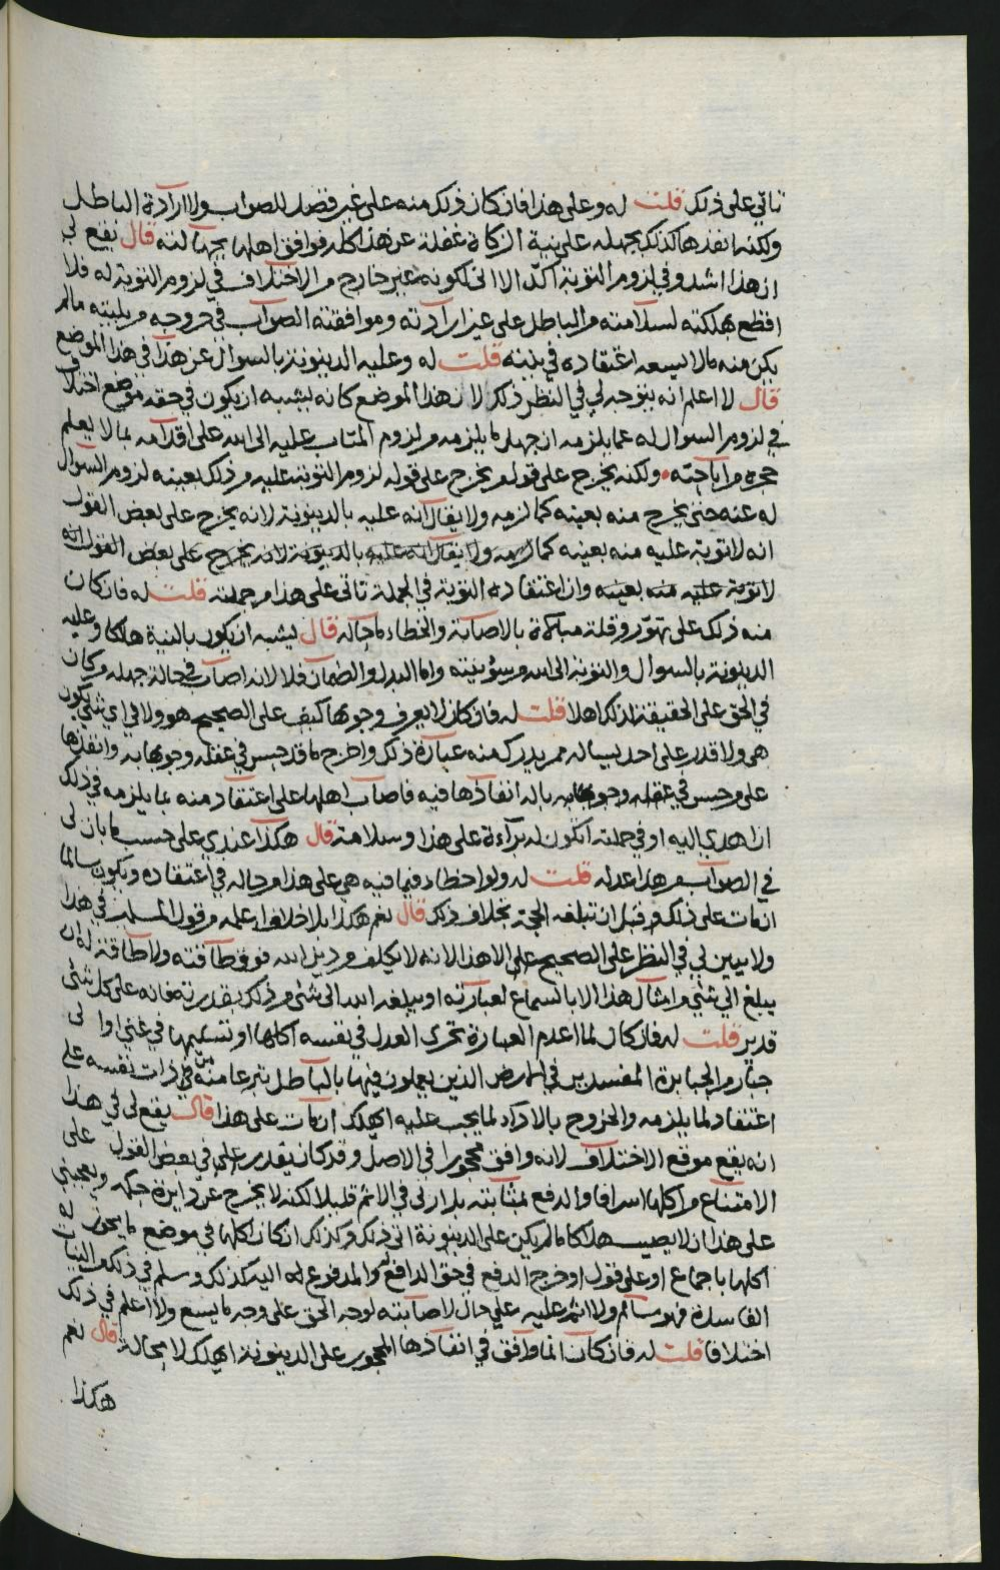 تاتي على ذلك قلت له وعلى هذا فان كان ذلك منه على غير قصد للصواب ولا ارادة الباطل
ولكنه انفذها كذلك بجهله على نية الزكاة غفلة عن هذا كله فوافق اهلها بجهالته قال يقع لي
ان هذا اشد وفي لزوم التوبة اكد الا انى لكونه غير خارج من الاختلاف في لزوم التوبة له فلا
اقطع بهلكته لسلامته من الباطل على غير ارادته وموافقته الصواب في خروجه من بليته مالم
يكن منه مالا يسعه اعتقاده في نيته قلت له وعليه الدينونة بالسوال عن هذا في هذا الموضع
قال لا اعلم انه يتوجه لي في النظر ذلك لان هذا الموضع كانه يشبه ان يكون في حقه موضع اختلاف
في لزوم السوال له عما يلزمه ان جهل ما يلزمه من لزوم المتاب عليه الى الله على اقدامه بما لا يعلم
حجره من اباحته ولكنه يخرج على قول من يخرج على قوله لزوم التوبة عليه من ذلك بعينه لزوم السوال
له عنه حتى يخرج منه بعينه كما لزمه ولا يقال انه عليه بالدينونة لانه يخرج على بعض القول
انه لا توبة عليه منه بعينه كما لزمه ولا يقال انه عليه بالدينونة لانه يخرج على بعض القول انه
لا توبة عليه منه بعينه وان اعتقاده التوبة في الجملة تاتى على هذا من جملته قلت له فان كان
منه ذلك على تهور وقلة مبالاة بالاصابة والخطاء ما حاله قال يشبه ان يكون بالنية هالكا وعليه
الدينونة بالسوال والتوبة الى الله من سوء نيته واما البدل والضمان فلا لانه اصاب في حالة جهله من كان
في الحق على الحقيقة لذلك اهلا قلت له فان كان لا يعرف وجوبها كيف على الصحيح هو ولا في اي شئ يكون
هي ولا قدر على احد يساله ممن يدرك منه عبارة ذلك واخرج ما قد حسن في عقله وجوبها به وانفذها
على من حسن في عقله وجوبها به باله انفاذها فيه فاصاب اهلها على اعتقاد منه بما يلزمه في ذلك
ان اهدي اليه او في جملته ايكون له براءة على هذا وسلامة قال هكذا عندي على حسب ما بان لى
في الصواب من هذا عدله قلت له ولو اخطا فيما فيه هي على هذا من حاله في اعتقاده ويكون سالما
ان مات على ذلك من قبل ان تبلغه الحجة بخلاف ذلك قال نعم هكذا بلا خلاف اعلمه من قول المسلمين في هذا
ولا يبين لي في النظر على الصحيح على الا هذا لانه لا يكلف من دين الله فوق طاقته ولا طاقة له ان
يبلغ الى شئ من امثال هذا الا بالسماع لعبارته او يبلغه الله الى شئ من ذلك بقدرته فانه على كل شئ
قدير قلت له فان كان لما اعدم العبارة تحرى العدل في نفسه اكلها او تسليمها في غني او الى
جبار من الجبابرة المفسدين في الارض الذين يعملون فيها بالباطل تبرعا منه من في ذات نفسه على
اعتقاد لما يلزمه والخروج بالاداء لما يجب عليه ايهلك ان مات على هذا قال يقع لي في هذا
انه يقع موقع الاختلاف لانه وافق محجورا في الاصل وقد كان يقدر على في بعض القول على
الامتناع من اكلها اسرافا والدفع بمثابته بدار لى في الاثم قليلا لكنه لا يخرج عن دايرة حكمه ويعجبني
على هذا ان لا يصيب هلاكا مالم يكن على الدينونة اتى ذلك وكذلك ان كان اكلها في موضع ما يجوز له
اكلها باجماع او على قول او خرج الدفع في حق الدافع والمدفوع له اليه كذلك وسلم في ذلك من النيات
الفاسدة فهو سالم ولا اثم عليه على حال لاصابته لوجه الحق على وجه ما يسع ولا اعلم في ذلك
اختلافا قلت له فان كان انما وافق في انفاذها المحجور على الدينونة ايهلك لا محالة قال نعم
هكذا